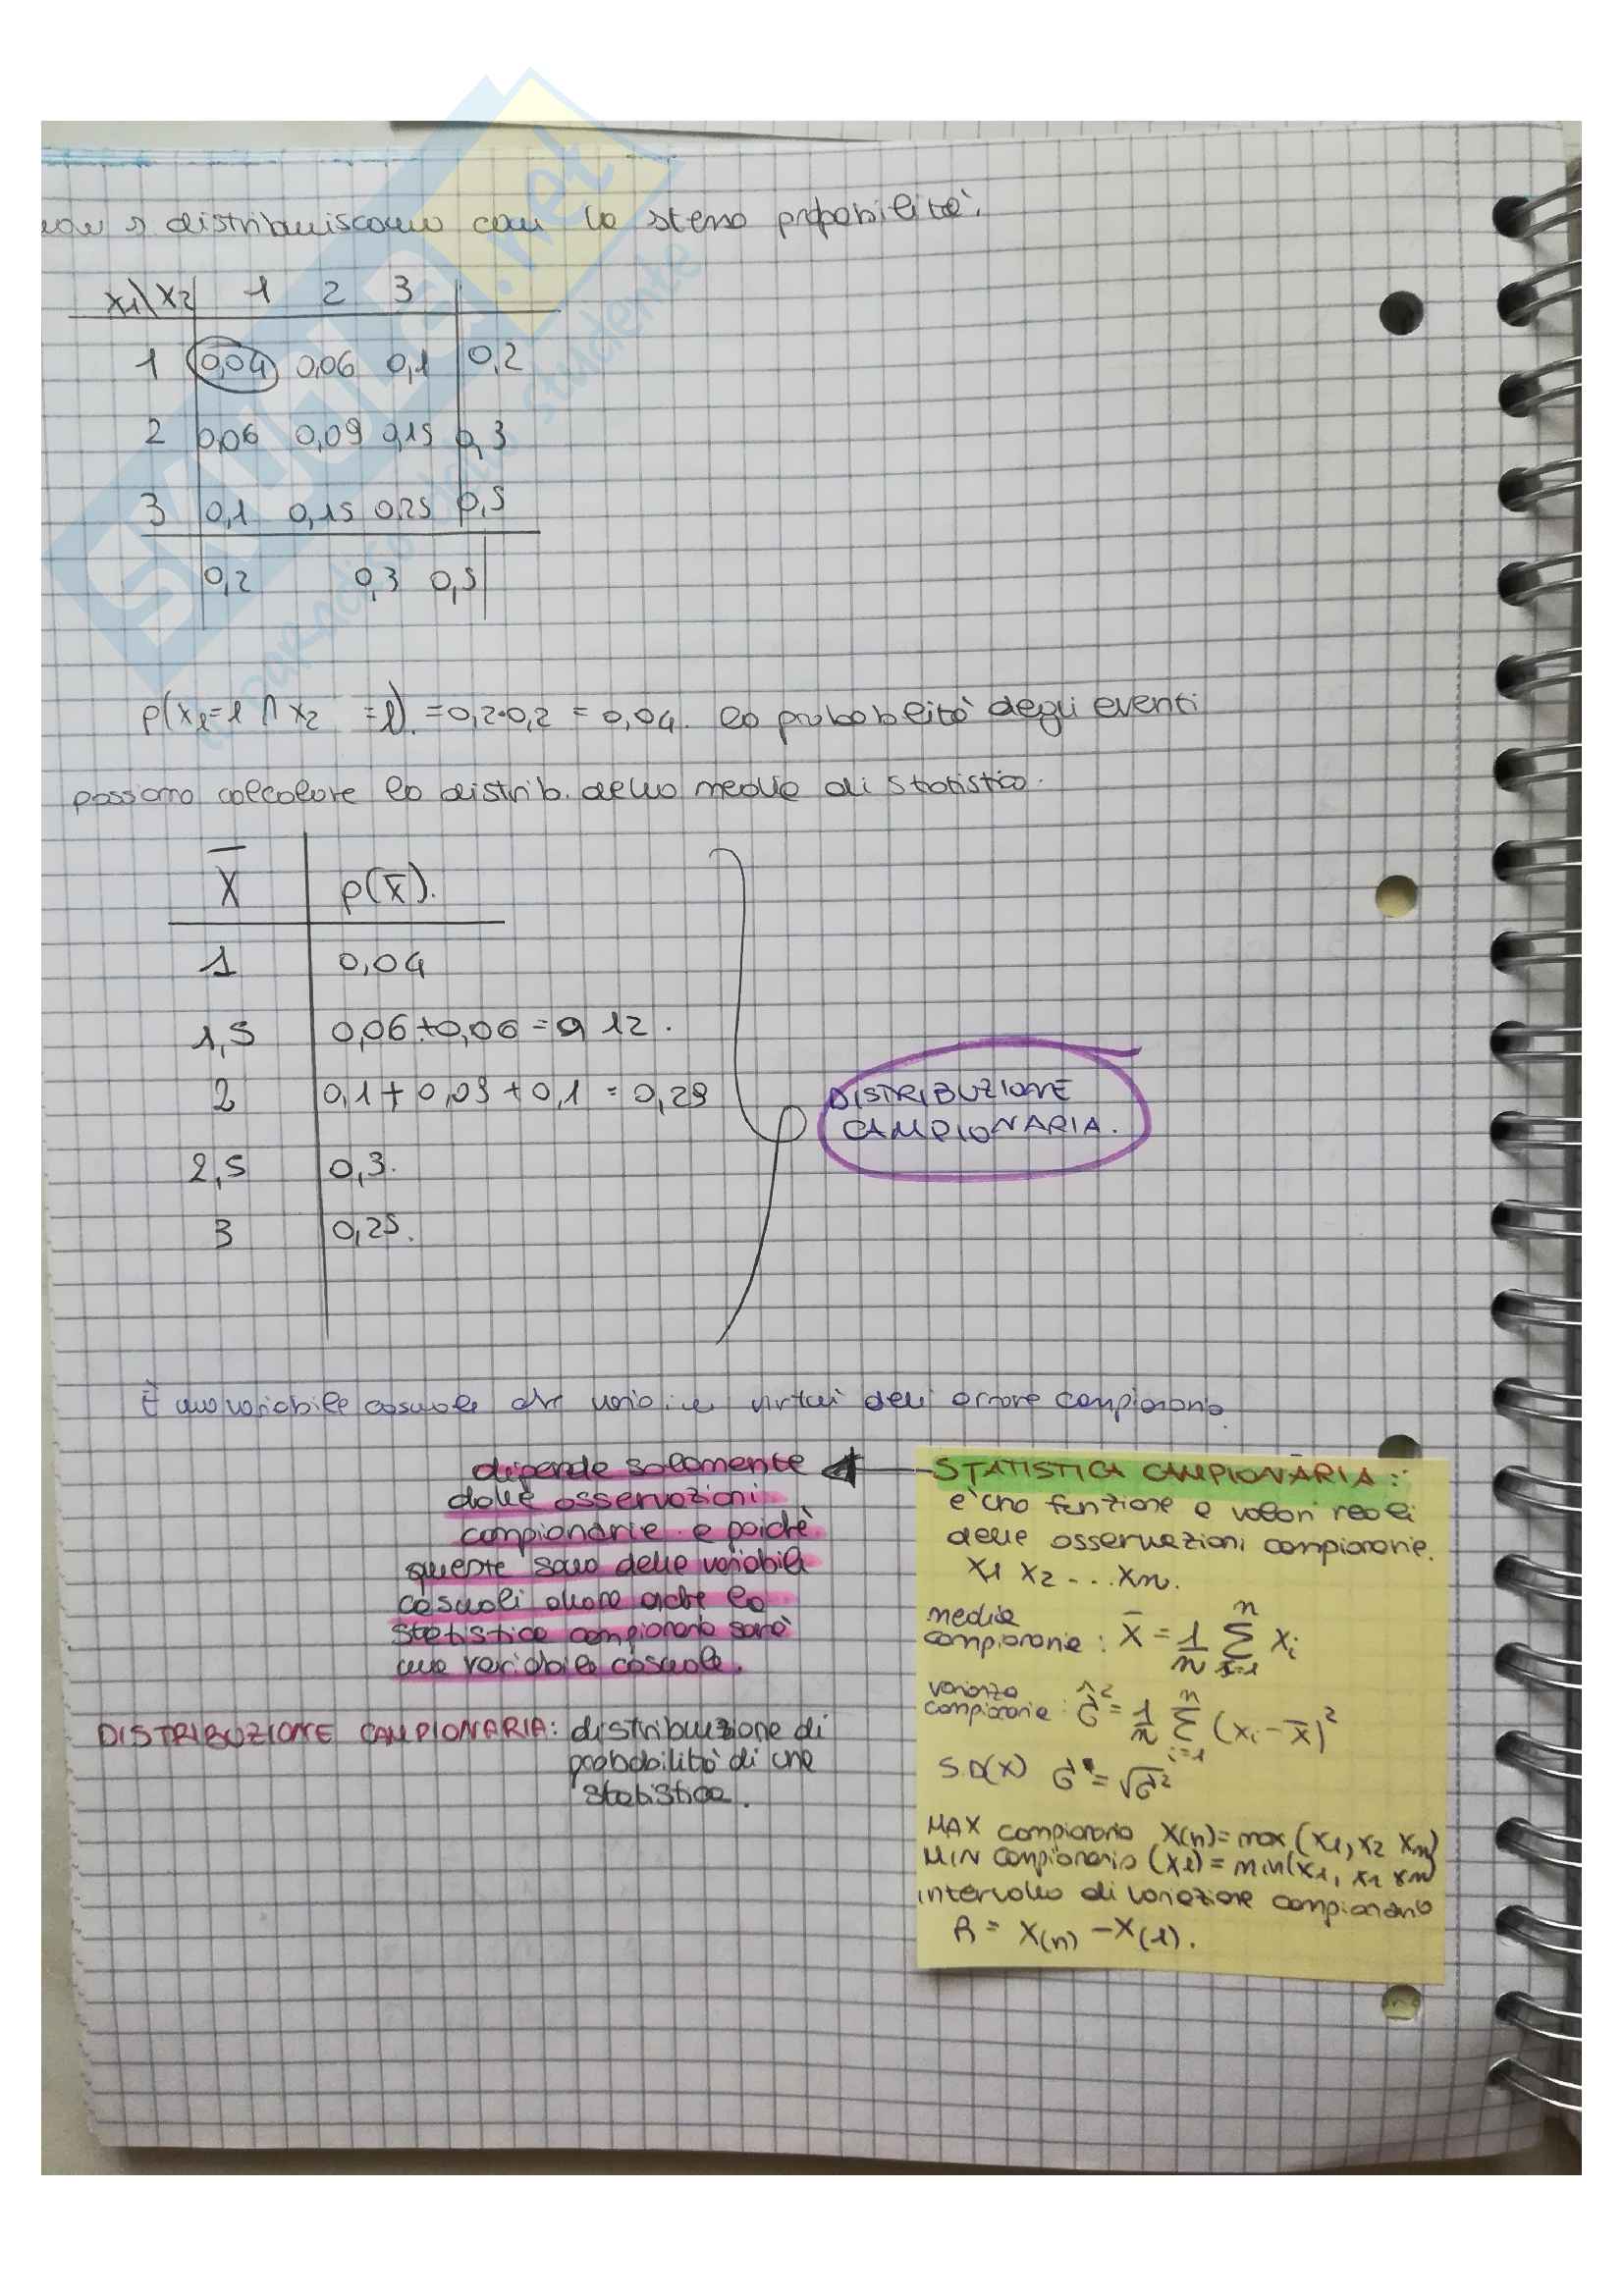 non si distribuiscono con la stessa probabilità.
x1\x2 1 2 3
1 0,04 0,06 0,1 0,2
2 0,06 0,09 0,15 0,3
3 0,1 0,15 0,25 0,5
0,2 0,3 0,5
p(x1=1 ∩ x2 =1). = 0,2·0,2 = 0,04. la probabilità degli eventi
possiamo calcolare la distrib. della media di statistica.
X̄ p(x̄).
1 0,04
1,5 0,06+0,06 = 0,12.
2 0,1 + 0,09 + 0,1 = 0,29
2,5 0,3.
3 0,25.
DISTRIBUZIONE
CAMPIONARIA.
È una variabile casuale che varia in virtù dell errore campionario
dipende solamente
dalle osservazioni
campionarie e poiché
queste sono delle variabili
casuali allora anche la
statistica campionaria sarà
una variabile casuale.
STATISTICA CAMPIONARIA:
è una funzione a valori reali
delle osservazioni campionarie.
x1 x2 ... xn.
media
campionaria : X̄ = 1/n Σ i=1 n xi
varianza
campionaria : σ̂² = 1/n Σ i=1 n (xi - x̄)²
S.D(X) σ̂ = √σ̂²
MAX campionario X(n) = max (x1, x2 xn)
MIN campionario (x1) = min(x1, x2 xn)
intervallo di variazione campionario
R = X(n) - X(1).
DISTRIBUZIONE CAMPIONARIA: distribuzione di
probabilità di una
statistica.
SKUOLA.net
studente